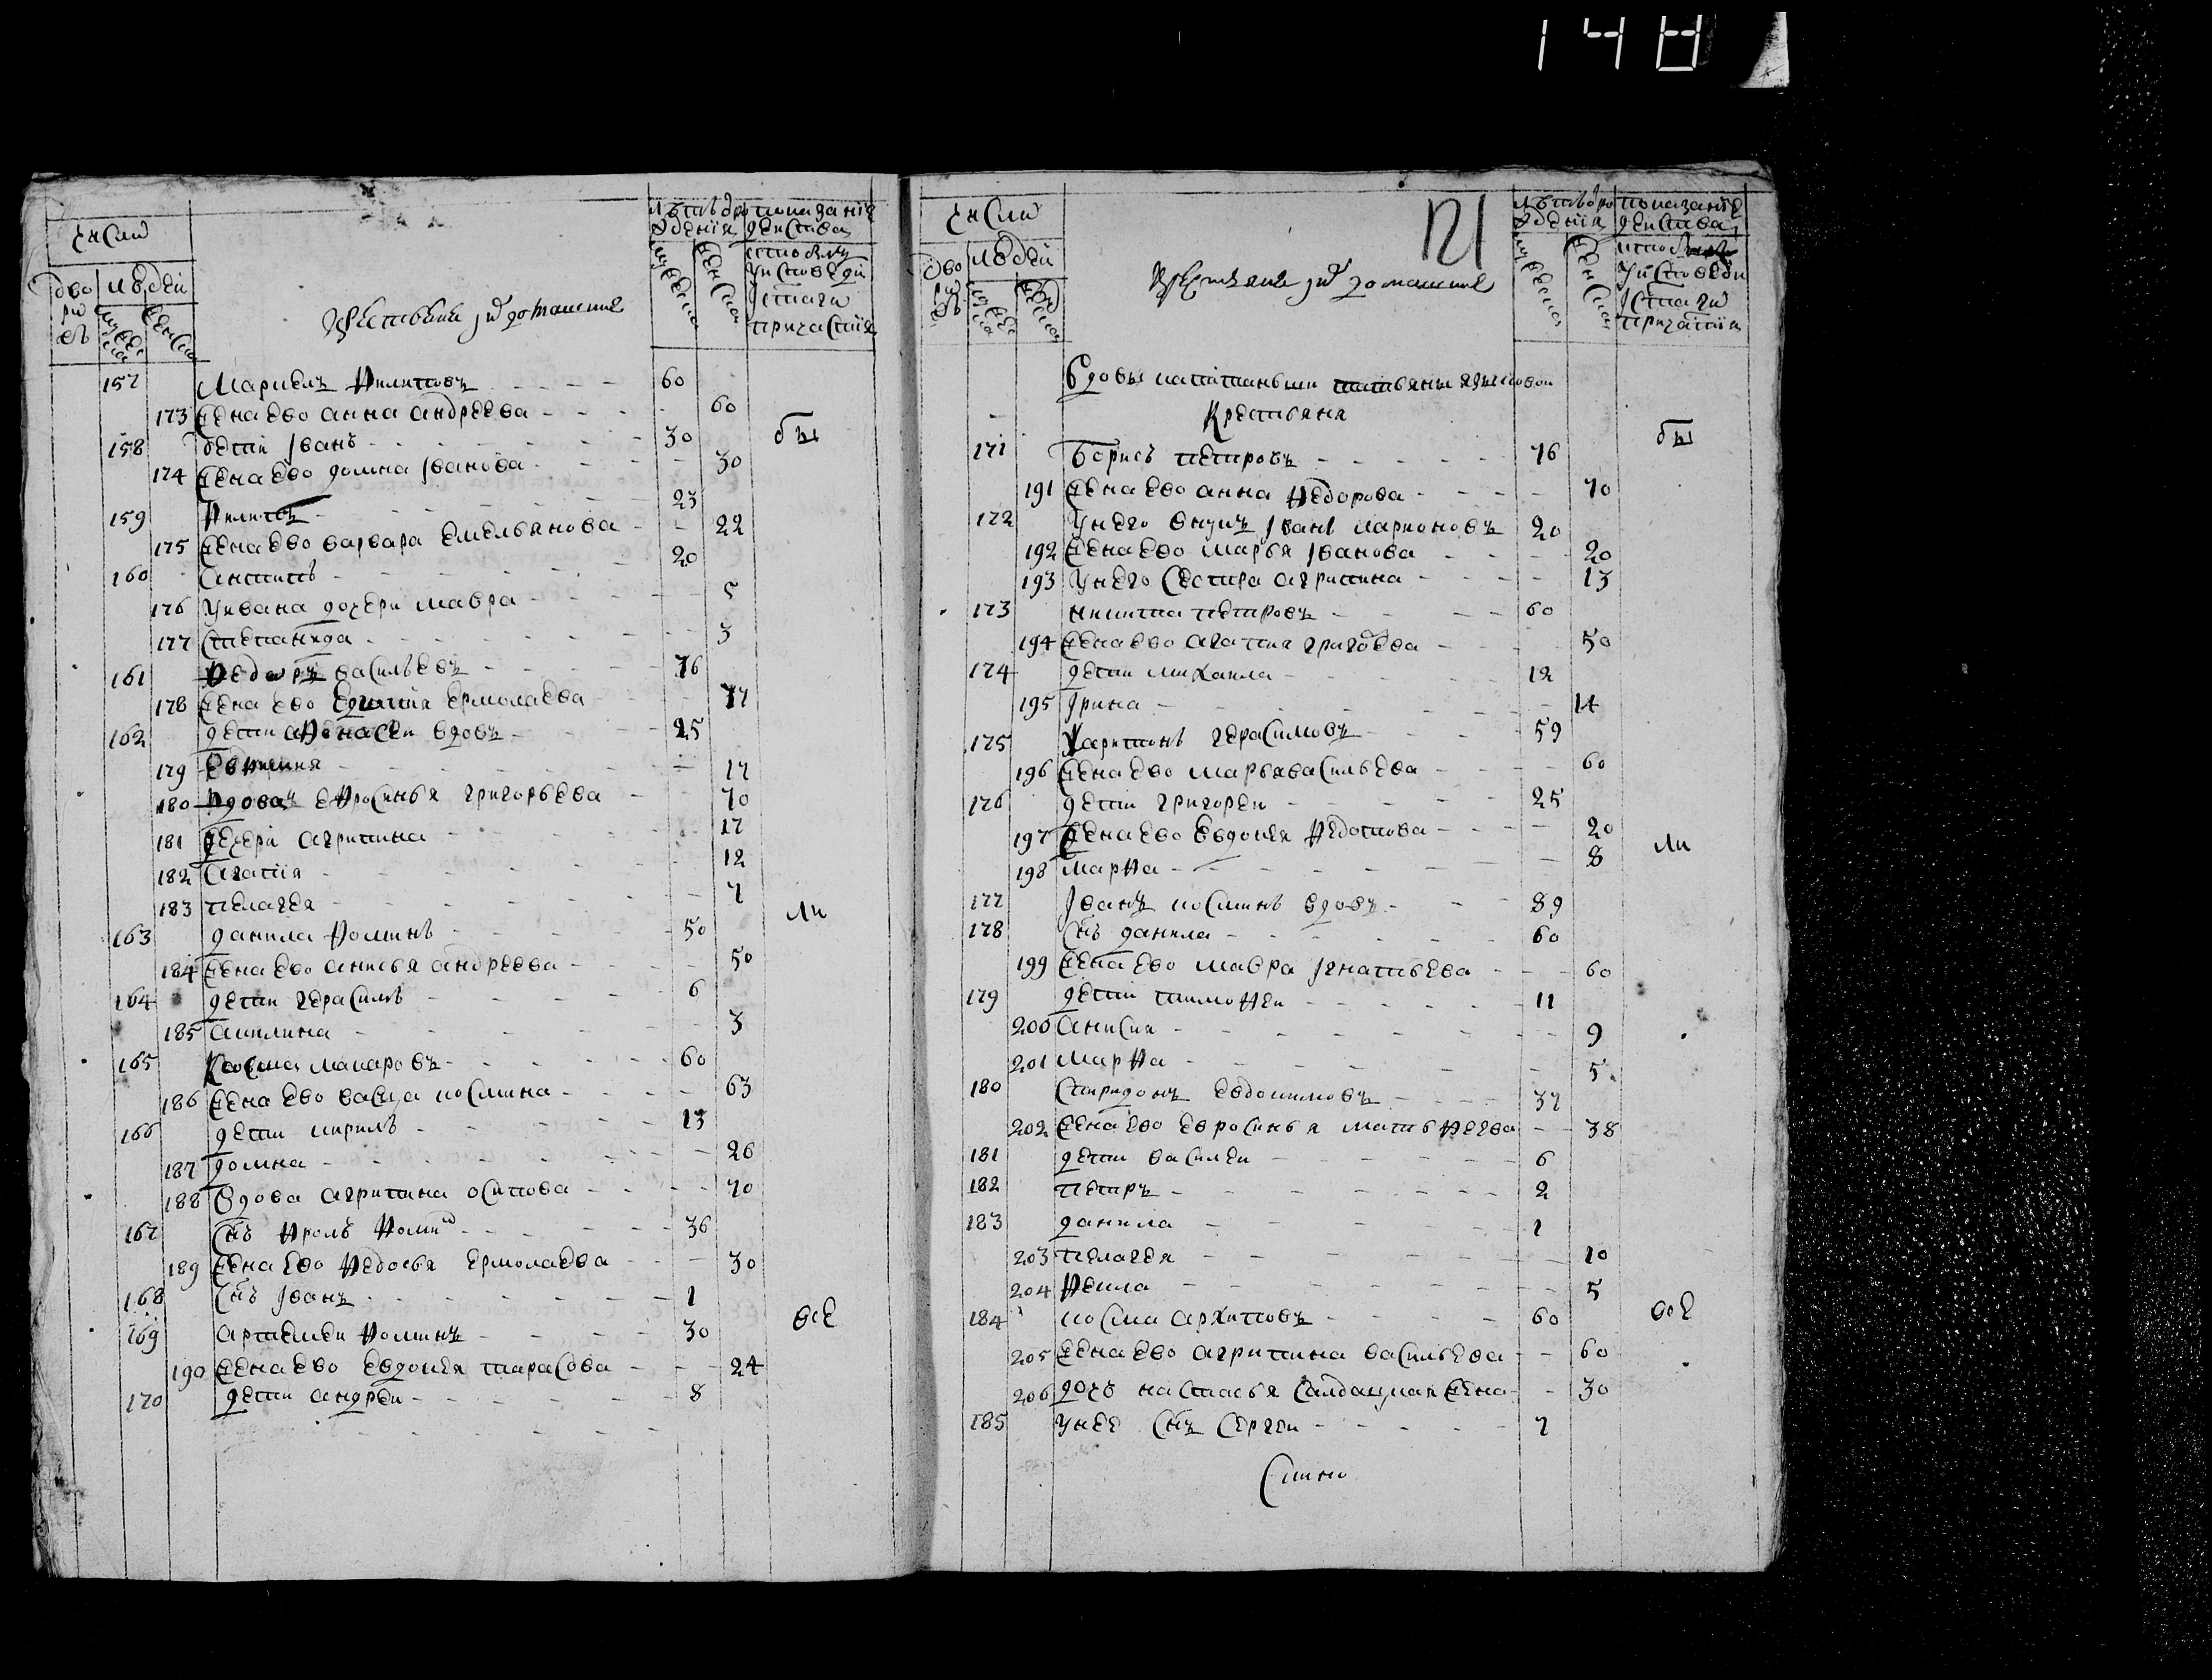 148
число
дворовъ
людей
мужеска
женска
крестьяне и домашние
лѣтъ рождения
мужеска
женска
показание действа
кто былъ у исповеди и святаго причастия
157 Маркелъ Филиповъ 60
173 жена ево анна андреева 60
158 дети Iванъ 30
174 жена ево домна Iванова 30
159 Филипъ 23
175 жена ево варвара емельянова 22
160 Антипъ 20
176 У ивана дочери мавра 5
177 Степанида 3
161 Федоръ васильевъ 76
178 жена ево ермолаева 77
162 дети афонасеи вдовъ 25
179 Евфимия 17
180 вдова ефросинья григорьева 70
181 дочери агрипина 17
182 Агапия 12
183 пелагея 7
163 данила Фоминъ 50
184 жена ево анисья андреева 50
164 дети герасимъ 6
185 акилина 3
165 Косма макаровъ 60
186 жена ево васса космина 63
166 дети кирилъ 13
187 домна 26
188 вдова агрипина осипова 70
167 снъ Фролъ Фоминъ 36
189 жена ево Федосья ермолаева 30
168 снъ Iванъ 1
169 артемеи Фоминъ 30
190 жена ево евдокея тарасова 24
170 дети андреи 8
бы
ли
все
121
число
дворовъ
людей
мужеска
женска
крестьяне и домашние
лѣтъ рождения
мужеска
женска
показание действа
кто у исповеди и святаго причастия
вдовы татьяны языковой
Крестьяня
171 Борисъ петровъ 76
191 жена ево анна Федорова 70
172 У него внукъ Iванъ ларионовъ 20
192 жена ево марья Iванова 20
193 У него сестра агрипина 13
173 никита петровъ 60
194 жена ево агапия григорева 50
174 дети михаила 12
195 Iрина 14
175 Харитонъ герасимовъ 59
196 жена ево марья васильева 60
176 дети григореи 25
197 жена ево евдокея Федотова 20
198 марфа 8
177 Iванъ косминъ вдовъ 89
178 снъ данила 60
199 жена ево мавра Iгнатьева 60
179 дети тимофеи 11
200 Анисия 9
201 марфа 5
180 Спиридонъ евдокимовъ 37
202 жена ево евросинья матьфеева 38
181 дети василеи 6
182 петръ 2
183 данила 1
203 пелагея 10
204 Фекла 5
184 косма архиповъ 60
205 жена ево агрипина васильева 60
206 дочь настасья салдацкая жена 30
185 У нее снъ сергеи 7
бы
ли
все